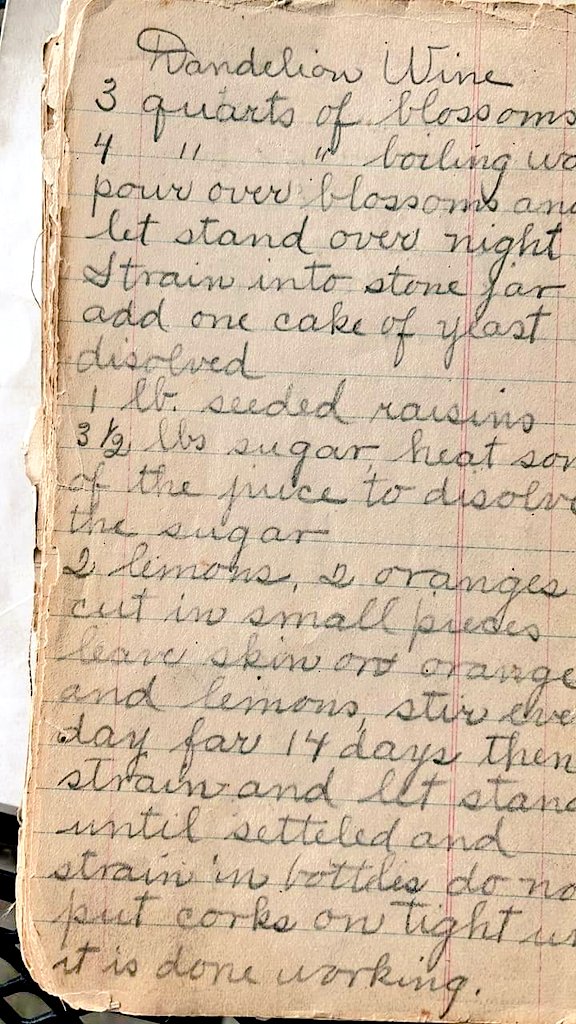 Dandelion Wine
3 quarts of blossoms
4 " " boiling wa
pour over blossoms and
let stand over night
Strain into stone jar
add one cake of yeast
disolved
1 lb. seeded raisins
3 1/2 lbs sugar, heat som
of the juice to disolve
the sugar
2 lemons, 2 oranges
cut in small pieces
leave skin on orange
and lemons, stir eve
day for 14 days then
strain and let stand
until setteled and
strain in bottles do no
put corks on tight un
it is done working.